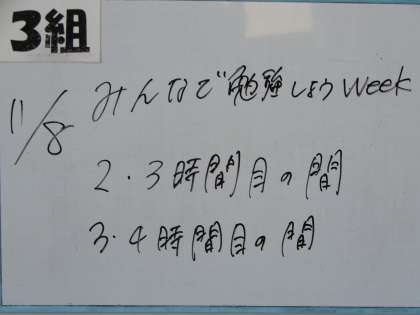 3組
11/8 みんなで勉強しようweek
2・3時間目の間
3・4時間目の間